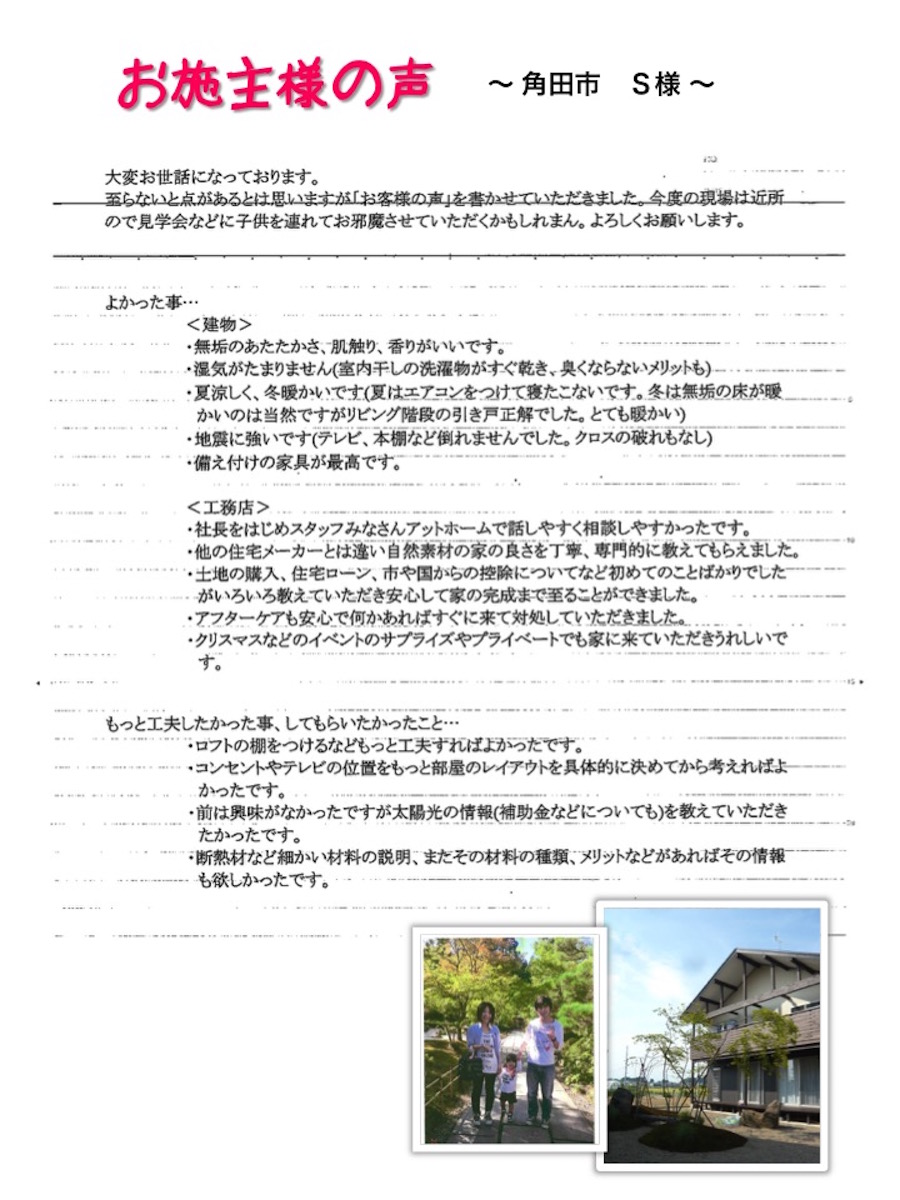 お施主様の声
～ 角田市　S様 ～
大変お世話になっております。
至らないと点があるとは思いますが「お客様の声」を書かせていただきました。今度の現場は近所
ので見学会などに子供を連れてお邪魔させていただくかもしれまん。よろしくお願いします。
よかった事…
＜建物＞
・無垢のあたたかさ、肌触り、香りがいいです。
・湿気がたまりません(室内干しの洗濯物がすぐ乾き、臭くならないメリットも)
・夏涼しく、冬暖かいです(夏はエアコンをつけて寝たこないです。冬は無垢の床が暖
かいのは当然ですがリビング階段の引き戸正解でした。とても暖かい)
・地震に強いです(テレビ、本棚など倒れませんでした。クロスの破れもなし)
・備え付けの家具が最高です。
＜工務店＞
・社長をはじめスタッフみなさんアットホームで話しやすく相談しやすかったです。
・他の住宅メーカーとは違い自然素材の家の良さを丁寧、専門的に教えてもらえました。
・土地の購入、住宅ローン、市や国からの控除についてなど初めてのことばかりでした
がいろいろ教えていただき安心して家の完成まで至ることができました。
・アフターケアも安心で何かあればすぐに来て対処していただきました。
・クリスマスなどのイベントのサプライズやプライベートでも家に来ていただきうれしいで
す。
もっと工夫したかった事、してもらいたかったこと…
・ロフトの棚をつけるなどもっと工夫すればよかったです。
・コンセントやテレビの位置をもっと部屋のレイアウトを具体的に決めてから考えればよ
かったです。
・前は興味がなかったですが太陽光の情報(補助金などについても)を教えていただき
たかったです。
・断熱材など細かい材料の説明、またその材料の種類、メリットなどがあればその情報
も欲しかったです。